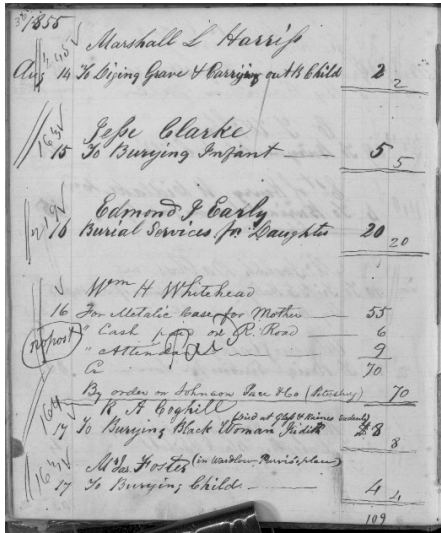 1855
Marshall L Harriss
Aug 14 To Diging Grave & Carrying out B Child 2 2
Jesse Clarke
15 To Burying Infant 5 5
Edmond J Early
16 Burial Services for Daughter 20 20
Wm H Whitehead
16 For Metalic Case for Mother 55
" Cash on R. Road 6
" Attendance 9
Cr 70
By order on Johnson Pace & Co (Petersburg) 70
R A Coghill
17 To Burying Black Woman Judith (Died at) 8 8
Mr Jas. Foster (in Wardlow Purvis's place)
17 To Burying Child 4 4
109